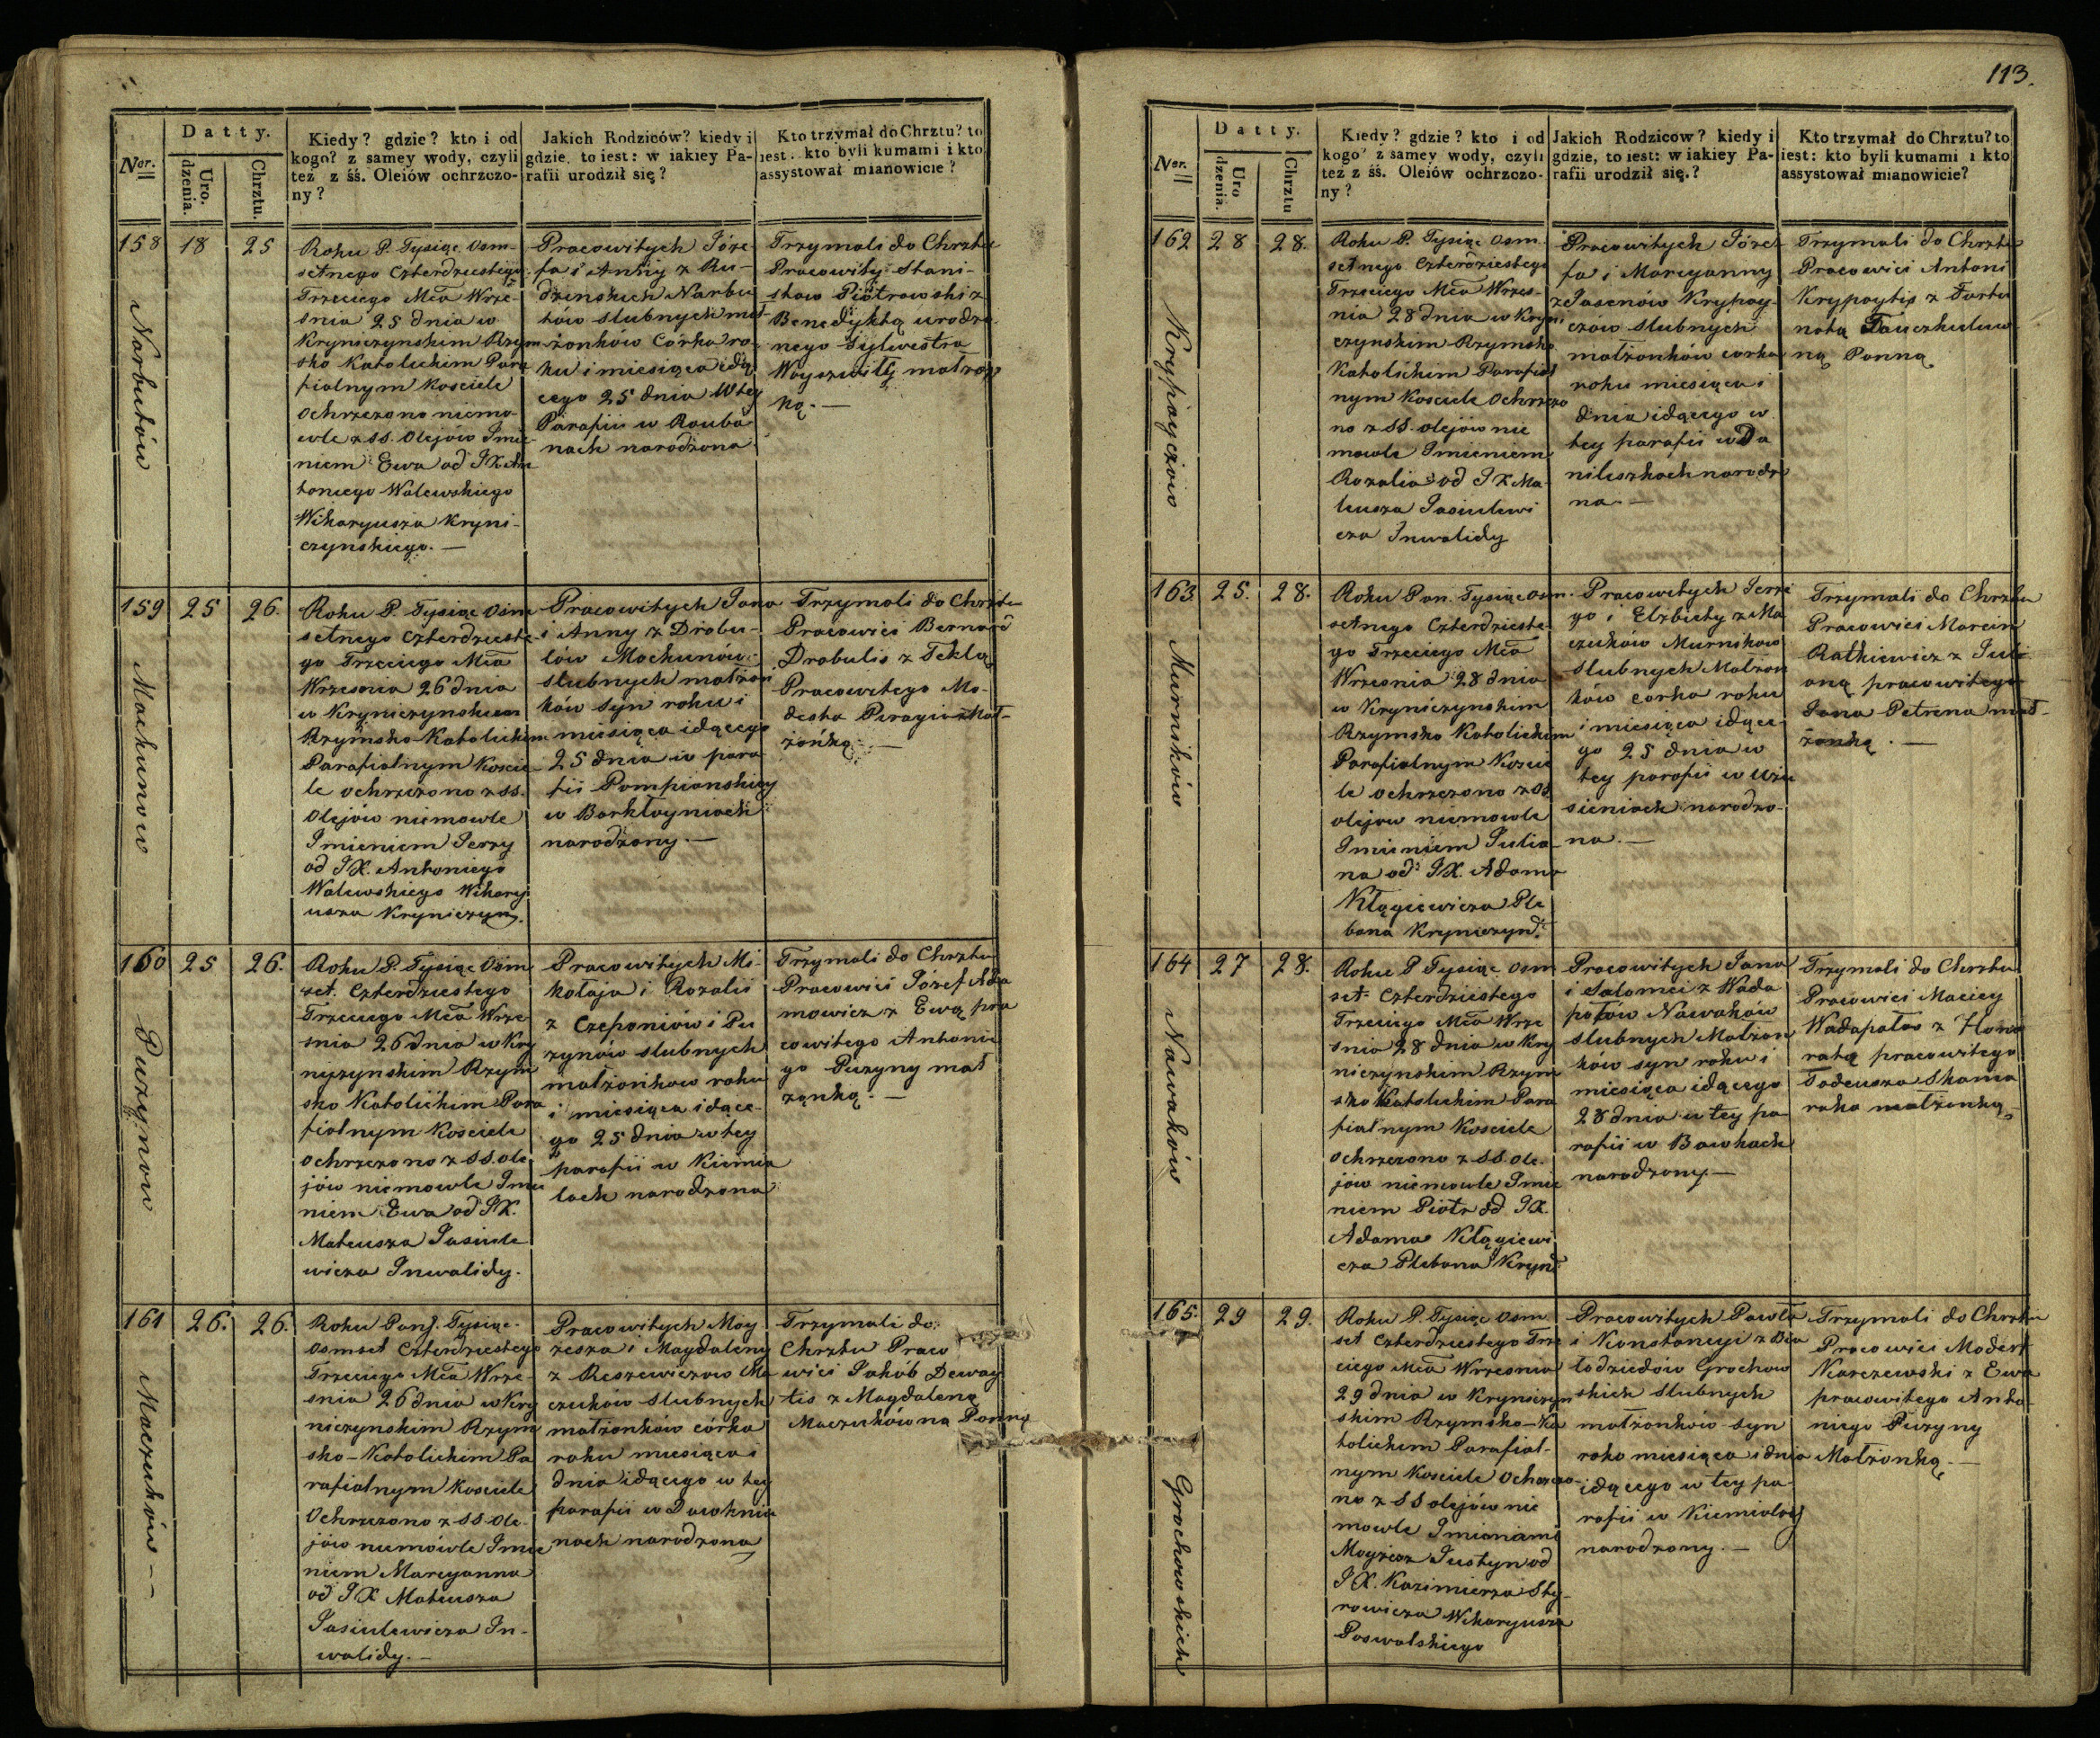 Datty.
Ner.
Uro.
dzenia.
Chrztu.
Kiedy? gdzie? kto i od
kogo? z samey wody, czyli
też z śś. Oleiów ochrzczo-
ny?
Jakich Rodziców? kiedy i
gdzie, to iest: w iakiey Pa-
rafii urodził się?
Kto trzymał do Chrztu? to
iest: kto byli kumami i kto
assystował mianowicie?
158
18
25
Narbutów
Roku P. Tysiąc Osm-
setnego Czterdziestego
Trzeciego Mca Wrze-
snia 25 dnia w
Kryniczynskim Rzym-
sko Katolickim Para
fialnym Kosciele
Ochrzczono niemo-
wle z SS. Olejów Imie-
niem Ewa od J X. An
toniego Walewskiego
Wikaryusza Kryni-
czynskiego. —
Pracowitych Józe-
fa i Anny z Ru-
dzinskich Narbu
tów slubnych mał-
zonków Córka ro-
ku i miesiąca idą
cego 25 dnia w tey
Parafii w Rouba
nach narodzona
Trzymali do Chrztu
Pracowity Stani-
sław Piotrowski z
Benedyktą urodzo
nego Sylwestra
Woyszwiłły małzon
ką. —
159
25
26.
Machunow
Roku P. Tysiąc Osm
setnego Czterdzieste-
go Trzeciego Mca
Wrzesnia 26 dnia
w Kryniczynskim
Rzymsko-Katolickim
Parafialnym Koscie
le ochrzczono z SS.
Olejów niemowle
Imieniem Jerzy
od J X. Antoniego
Walewskiego Wikary
usza Kryniczyn.
Pracowitych Jana
i Anny z Drobu-
lów Machunów
slubnych małzon
kow Syn roku i
miesiąca idącego
25 dnia w para
fii Pompianskiey
w Barkłoyniach
narodzony. —
Trzymali do Chrztu
Pracowici Bernard
Drabulis z Teklą
Pracowitego Mo-
desta Puragia Mał-
zonką. —
160
25
26.
Puzynow
Roku P. Tysiąc Osm
set. Czterdziestego
Trzeciego Mca Wrze-
snia 26 dnia w Kry
niczynskim Rzym
sko Katolickim Para
fialnym Kosciele
ochrzczono z SS. ole
jów niemowle Imie
niem Ewa od J X.
Mateusza Jasiule
wicza Inwalidy.
Pracowitych Mi-
kołaja i Rozalii
z Czeponiów i Pu
zynów slubnych
małzonkow roku
i miesiąca idące-
go 25 dnia w tey
parafii w Kiemia
lach narodzona
Trzymali do Chrztu
Pracowici Józef Ada
mowicz z Ewą pra
cowitego Antonie
go Puzyny mał
zonką. —
161
26.
26.
Maczuków —
Roku Pans. Tysiąc
Osmset Czterdziestego
Trzeciego Mca Wrze-
snia 26 dnia w Kry
niczynskim Rzym
sko-Katolickim Pa
rafialnym Kosciele
Ochrzczono z SS Ole-
jów niemowle Imie
niem Maryanna
od J X Mateusza
Jasiulewicza In-
walidy. —
Pracowitych Moy
zesza i Magdaleny
z Reszewiczow Ma
czuków slubnych
małzonków córka
roku miesiąca i
dnia idącego w tey
parafii w Dowknie
nach narodzona
Trzymali do
Chrztu Praco
wici Jakób Deway
tis z Magdaleną
Maczukówną Panną
113.
Datty.
Ner.
Uro
dzenia.
Chrztu
Kiedy? gdzie? kto i od
kogo? z samey wody, czyli
też z śś. Oleiów ochrzczo-
ny?
Jakich Rodziców? kiedy i
gdzie, to iest: w iakiey Pa-
rafii urodził się.?
Kto trzymał do Chrztu? to
iest: kto byli kumami i kto
assystował mianowicie?
162
28
28.
Krypayczow
Roku P. Tysiąc Osm.
setnego Czterdziestego
Trzeciego Mca Wrzes-
nia 28 dnia w Kryni
czynskim Rzymsko
Katolickim Parafial
nym Kosciele Ochrzczo
no z SS. olejów nie
mowle Imieniem
Rozalia od J X Ma-
teusza Jasiulewi
cza Inwalidy
Pracowitych Józe-
fa i Maryanny
z Jasenów Krypay-
czów slubnych
małzonków corka
roku miesiąca i
dnia idącego w
tey parafii w Da
niliszkach narodzo
na. —
Trzymali do Chrztu
Pracowici Antoni
Krypaytis z Fortu
natą Tauczkulow
ną Panną
163
25.
28.
Murnikow
Roku Pan. Tysiąc Osm.
setnego Czterdzieste-
go Trzeciego Mca
Wrzesnia 28 dnia
w Kryniczynskim
Rzymsko Katolickim
Parafialnym Koscie
le Ochrzczono z SS.
olejow niemowle
Imieniem Julia
na od J X. Adama
Kłągiewicza Ple
bana Kryniczyn.
Pracowitych Jerze
go i Elzbiety z Ma
czuków Murnikow
Slubnych Małzon
ków corka roku
i miesiąca idące-
go 25 dnia w
tey parafii w Uzu
sieniach narodzo-
na. —
Trzymali do Chrztu
Pracowici Marcin
Ratkiewicz z Juli
aną pracowitego
Jana Petrena mał-
zonką. —
164
27
28.
Nawaków
Roku P Tysiąc Osm
set Czterdziestego
Trzeciego Mca Wrze
snia 28 dnia w Kry
niczynskim Rzym
sko Katolickim Para
fialnym Kosciele
Ochrzczono z SS. Ole-
jów niemowle Imie
niem Piotr od J X.
Adama Kłągiewi
cza Plebana Kryn.
Pracowitych Jana
i Salomei z Wada
pałów Nawaków
Slubnych Małzon
ków syn roku i
miesiąca idącego
28 dnia w tey pa-
rafii w Bawkach
narodzony —
Trzymali do Chrztu
Pracowici Maciey
Wadapałas z Hono
ratą pracowitego
Tadeusza Skama
raka małzonką
165.
29
29.
Grochowskich
Roku P. Tysiąc Osm
set Czterdziestego Trze
ciego Mca Wrzesnia
29 dnia w Kryniczyn
skim Rzymsko-Ka
tolickim Parafial-
nym Kosciele Ochrzczo-
no z SS olejów nie
mowle Imionami
Moyzesz Justyn od
J X. Kazimierza Sty-
rowicza Wikaryusza
Poswolskiego
Pracowitych Pawła
i Konstancyi z Bia
łodziedów Grochow
skich Slubnych
małzonków syn
roku miesiąca i dnia
idącego w tey pa
rafii w Kiemialach
narodzony. —
Trzymali do Chrztu
Pracowici Modest
Narczewski z Ewą
pracowitego Anto
niego Puzyny
Małzonką. —